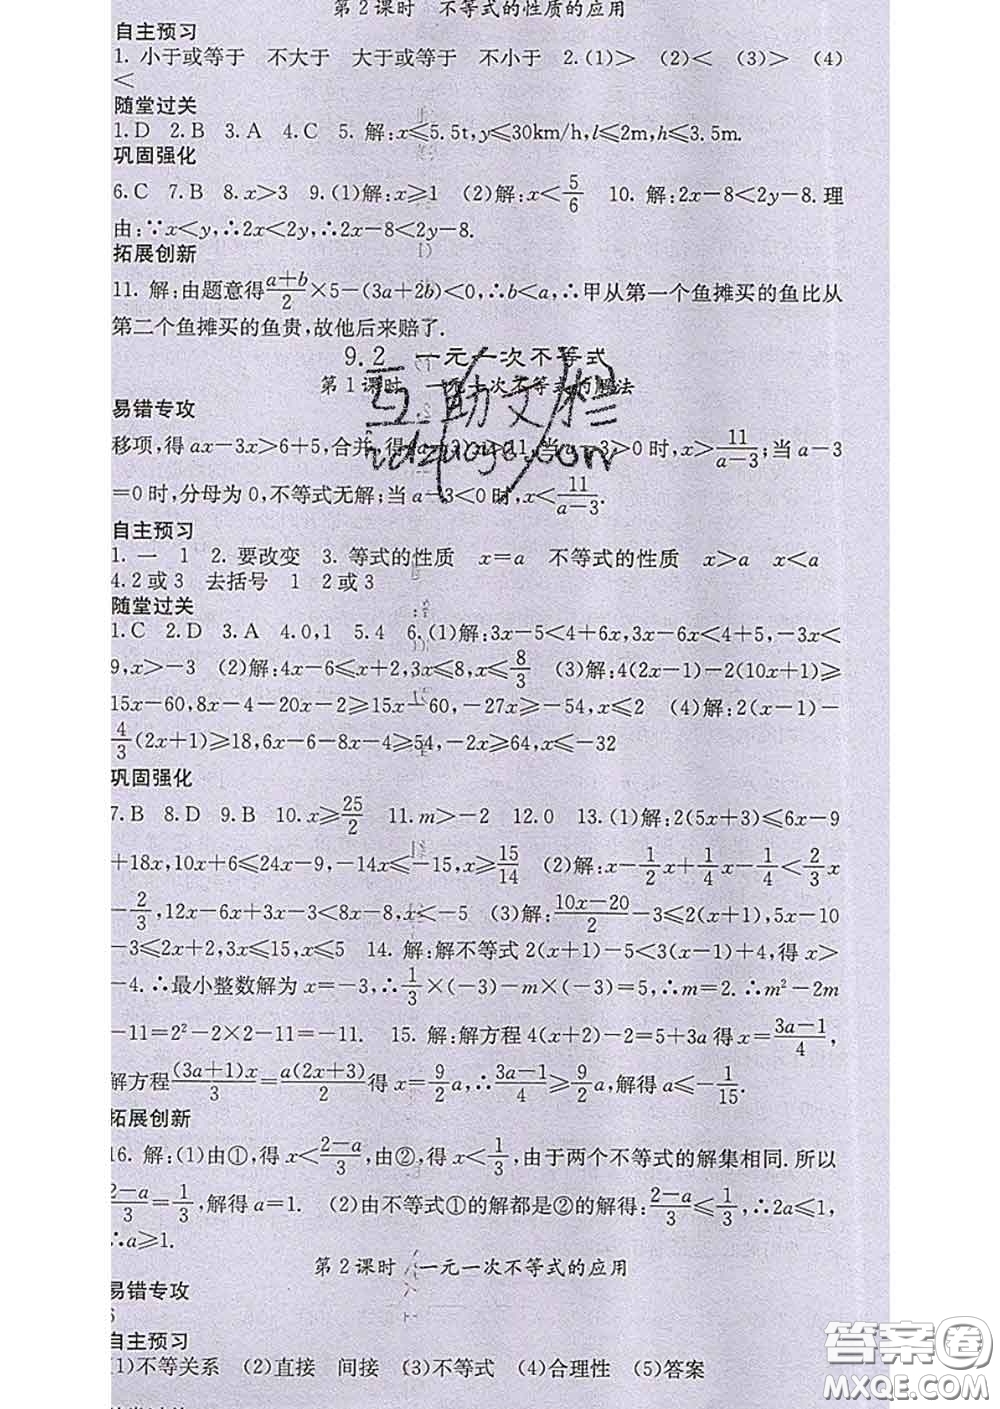 第2课时　不等式的性质的应用
自主预习
1. 小于或等于　不大于　大于或等于　不小于　2.(1)>　(2)<　(3)>　(4)
<
随堂过关
1.D　2.B　3.A　4.C　5. 解:x≤5.5t,y≤30km/h,l≤2m,h≤3.5m.
巩固强化
6.C　7.B　8.x>3　9.(1)解:x≥1　(2)解:x<5/6　10. 解:2x-8<2y-8.理
由:∵x<y,∴2x<2y,∴2x-8<2y-8.
拓展创新
11. 解:由题意得(a+b)/2×5-(3a+2b)<0,∴b<a,∴甲从第一个鱼摊买的鱼比从
第二个鱼摊买的鱼贵,故他后来赔了.
9.2　一元一次不等式
第1课时　一元一次不等式的解法
易错专攻
移项,得ax-3x>6+5,合并,得(a-3)x>11,当a-3>0时,x>11/(a-3);当a-3
=0时,分母为0,不等式无解;当a-3<0时,x<11/(a-3).
自主预习
1. 一　1　2. 要改变　3. 等式的性质　x=a　不等式的性质　x>a　x<a
4.2或3　去括号　1　2或3
随堂过关
1.C　2.D　3.A　4.0,1　5.4　6.(1)解:3x-5<4+6x,3x-6x<4+5,-3x<
9,x>-3　(2)解:4x-6≤x+2,3x≤8,x≤8/3　(3)解:4(2x-1)-2(10x+1)≥
15x-60,8x-4-20x-2≥15x-60,-27x≥-54,x≤2　(4)解:2(x-1)-
4/3(2x+1)≥18,6x-6-8x-4≥54,-2x≥64,x≤-32
巩固强化
7.B　8.D　9.B　10.x≥25/2　11.m>-2　12.0　13.(1)解:2(5x+3)≤6x-9
+18x,10x+6≤24x-9,-14x≤-15,x≥15/14　(2)解:x-1/2x+1/4x-1/4<2/3x
-2/3,12x-6x+3x-3<8x-8,x<-5　(3)解:(10x-20)/2-3≤2(x+1),5x-10
-3≤2x+2,3x≤15,x≤5　14. 解:解不等式2(x+1)-5<3(x-1)+4,得x>
-4.∴最小整数解为x=-3,∴1/3×(-3)-m×(-3)=5,∴m=2.∴m²-2m
-11=2²-2×2-11=-11.　15. 解:解方程4(x+2)-2=5+3a得x=(3a-1)/4,
解方程(3a+1)x/3=a(2x+3)/2得x=9/2a,∴(3a-1)/4≥9/2a,解得a≤-1/15.
拓展创新
16. 解:(1)由①,得x<(2-a)/3,由②,得x<1/3,由于两个不等式的解集相同.所以
(2-a)/3=1/3,解得a=1.　(2)由不等式①的解都是②的解得:(2-a)/3≤1/3,∴2a≤1,
∴a≥1.
第2课时　一元一次不等式的应用
易错专攻
6
自主预习
(1)不等关系　(2)直接　间接　(3)不等式　(4)合理性　(5)答案
互助文档
答案圈
MXQE.COM